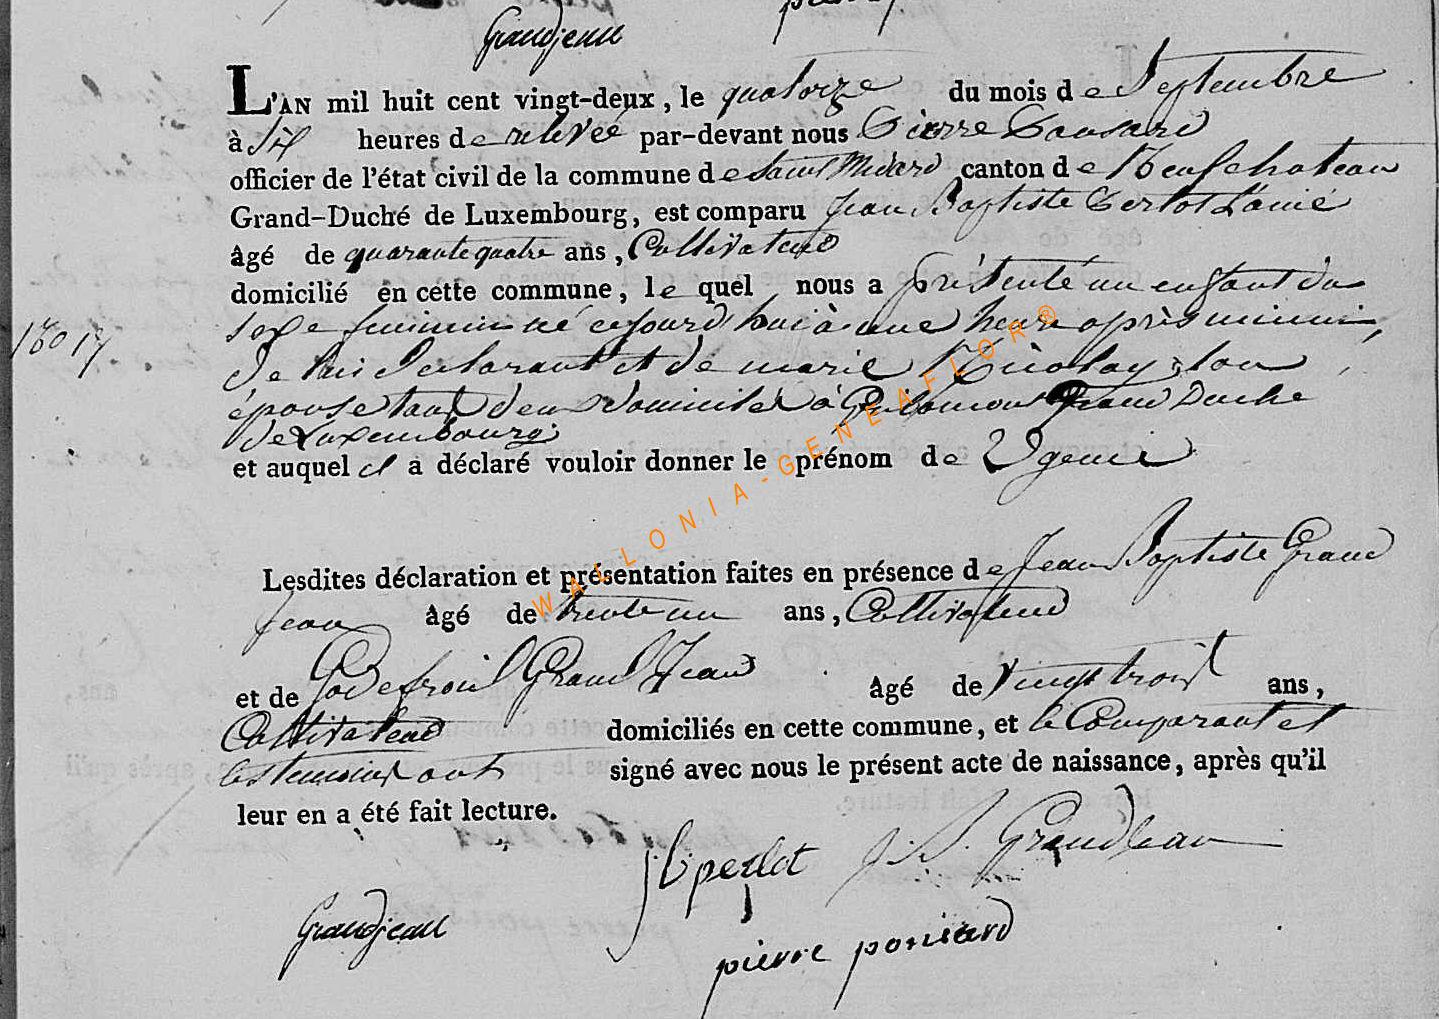 Grandjean
L'AN mil huit cent vingt-deux, le quatorze du mois de Septembre
à Six heures de relevée par-devant nous Pierre Ponsard
officier de l'état civil de la commune de Saint Médard canton de Neufchateau
Grand-Duché de Luxembourg, est comparu Jean Baptiste Perlot L'ainé
âgé de quarante quatre ans, Cultivateur
domicilié en cette commune, le quel nous a présenté un enfant du
sexe feminin né cejourd'hui à une heure après minuit,
de lui declarant et de marie Nicolay, son
épouse tous deux domiciliés à Gribomont Grand Duché
de Luxembourg
et auquel il a déclaré vouloir donner le prénom de Ugenie
N° 17
Lesdites déclaration et présentation faites en présence de Jean Baptiste Grand
Jean âgé de trente un ans, Cultivateur
et de Godefroid Grand Jean âgé de Vingt trois ans,
Cultivateur domiciliés en cette commune, et le Comparant et
les temoins ont signé avec nous le présent acte de naissance, après qu'il
leur en a été fait lecture.
J B perlot J. B. Grandjean
Grandjean
pierre ponsard
WALLONIA-GENEAFLOR®